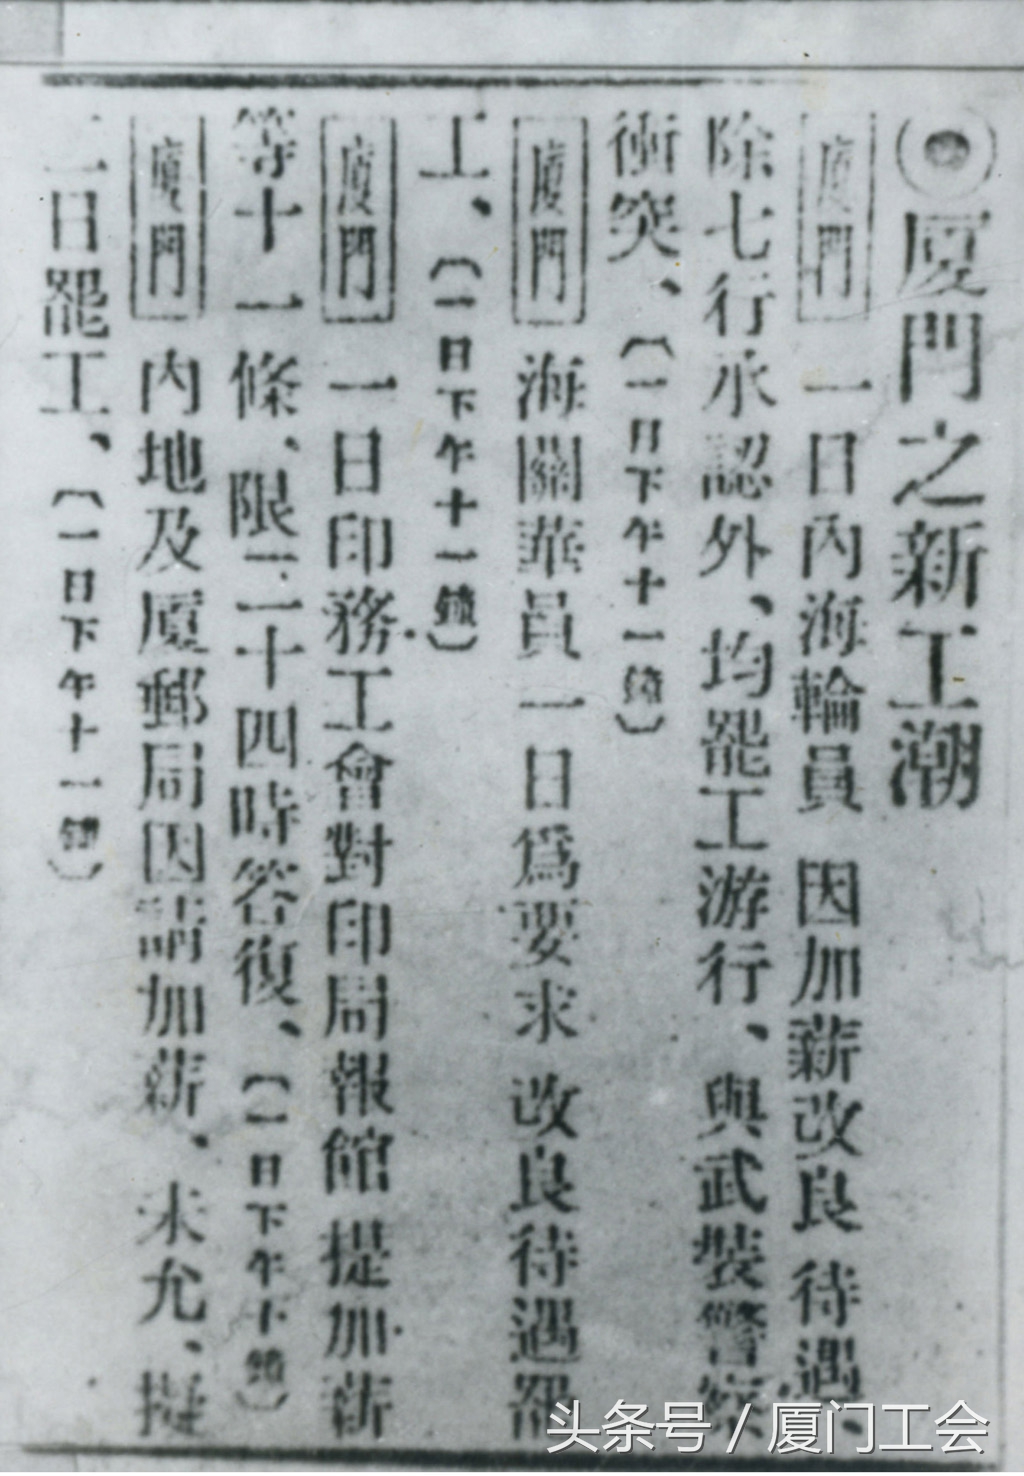 ◉厦門之新工潮
厦門 一日內海輪員 因加薪改良 待遇、
除七行承認外、均罷工游行、與武裝警察
衝突、（一日下午十一鐘）
厦門 海關華員一日爲要求 改良待遇罷
工、（一日下午十一鐘）
厦門 一日印務工會對印局報館 提加薪
等十一條、限二十四時答復、（一日下午十鐘）
厦門 內地及厦郵局因請加薪、未允、擬
二日罷工、（一日下午十一鐘）
头条号 / 厦门工会